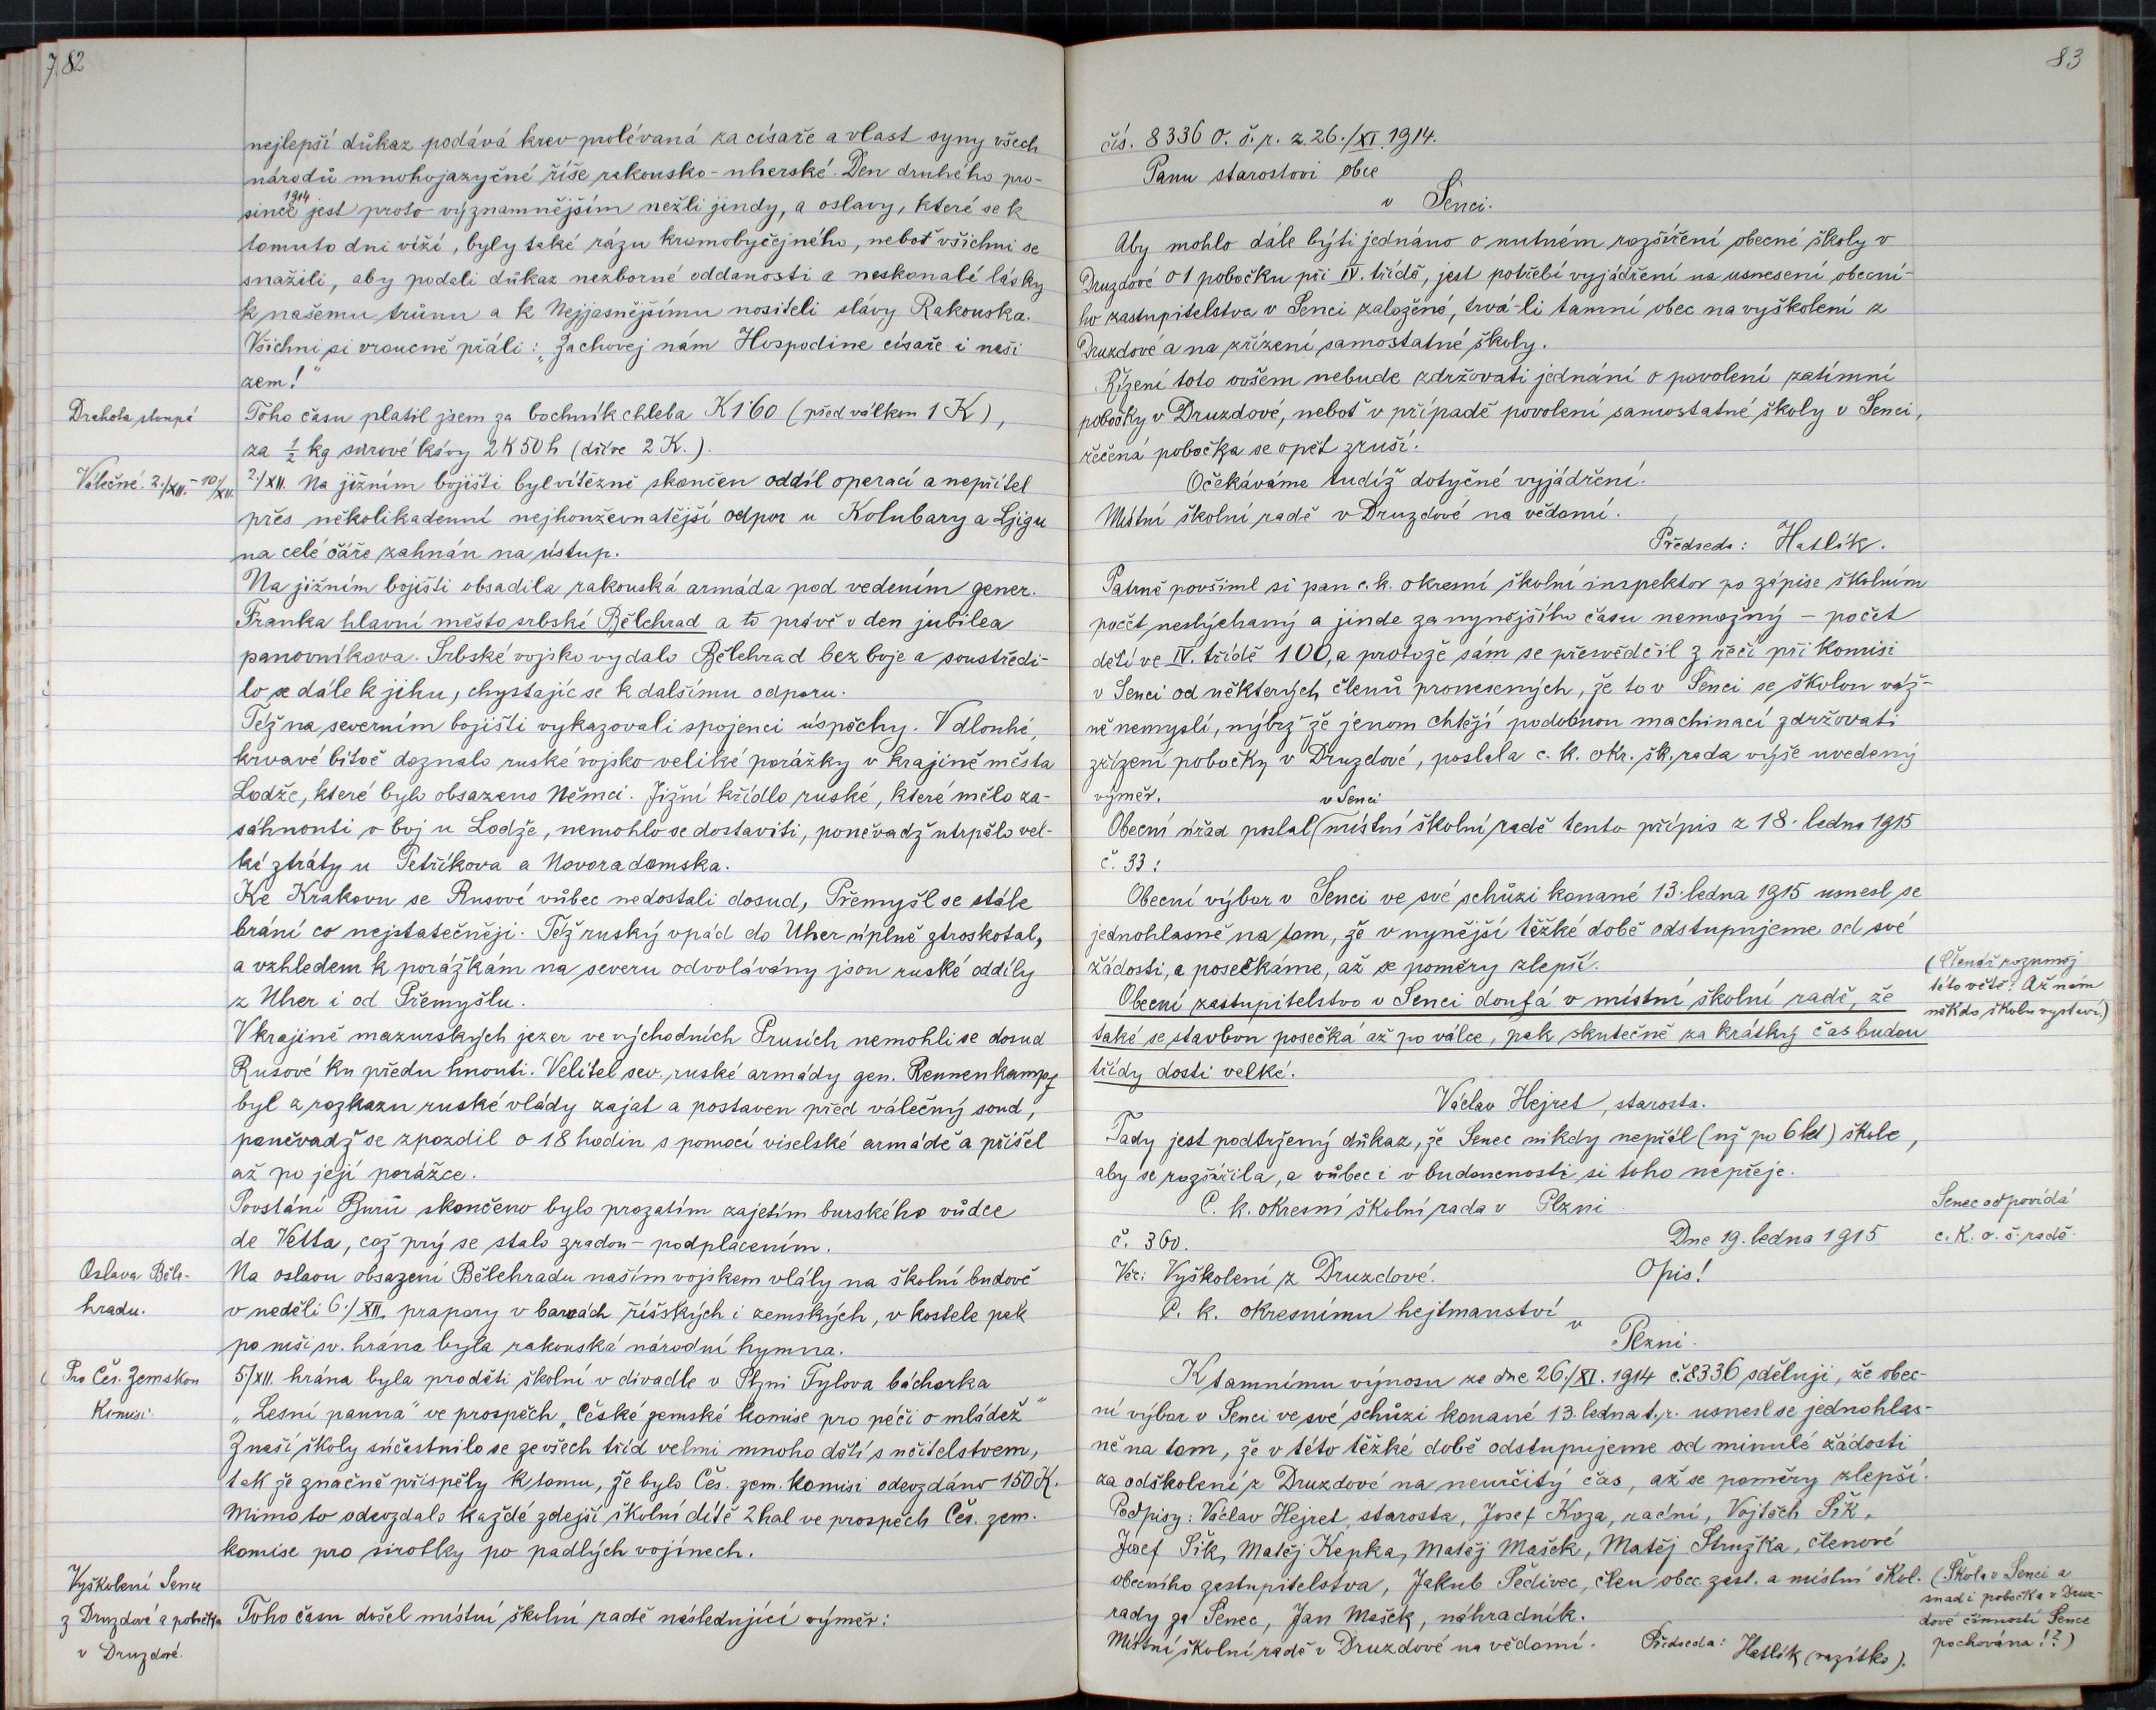 82
nejlepší důkaz podává krev prolévaná za císaře a vlast syny všech
národů mnohojazyčné říše rakousko-uherské. Den druhého pro-
since 1914 jest proto významnějším nežli jindy, a oslavy, které se k
tomuto dni víží, byly také rázu kromobyčejného, neboť všichni se
snažili, aby podali důkaz nezborné oddanosti a neskonalé lásky
k našemu trůnu a k Nejjasnějšímu nositeli slávy Rakouska.
Všichni si vroucně přáli: „Zachovej nám Hospodine císaře i naši
zem!"
Drahota stoupá
Toho času platil jsem za bochník chleba K 1·60 (před válkou 1 K),
za ½ kg surové kávy 2 K 50 h (dříve 2 K.).
Válečné. 2./XII. – 10/XII.
2./XII. Na jižním bojišti byl vítězně skončen oddíl operací a nepřítel
přes několikadenní nejhouževnatější odpor u Kolubary a Ljigu
na celé čáře zahnán na ústup.
Na jižním bojišti obsadila rakouská armáda pod vedením gener.
Franka hlavní město srbské Bělehrad a to právě v den jubilea
panovníkova. Srbské vojsko vydalo Bělehrad bez boje a soustředi-
lo se dále k jihu, chystajíc se k dalšímu odporu.
Též na severním bojišti vykazovali spojenci úspěchy. V dlouhé,
krvavé bitvě doznalo ruské vojsko veliké porážky v krajině města
Lodže, které bylo obsazeno Němci. Jižní křídlo ruské, které mělo za-
sáhnouti v boj u Lodže, nemohlo se dostaviti, poněvadž utrpělo vel-
ké ztráty u Petříkova a Novoradomska.
Ke Krakovu se Rusové vůbec nedostali dosud, Přemyšl se stále
brání co nejstatečněji. Též ruský vpád do Uher úplně ztroskotal,
a vzhledem k porážkám na severu odvolávány jsou ruské oddíly
z Uher i od Přemyšlu.
V krajině mazurských jezer ve východních Prusích nemohli se dosud
Rusové ku předu hnouti. Velitel sev. ruské armády gen. Rennenkampf
byl z rozkazu ruské vlády zajat a postaven před válečný soud,
poněvadž se zpozdil o 18 hodin s pomocí viselské armádě a přišel
až po její porážce.
Povstání Burů skončeno bylo prozatím zajetím burského vůdce
de Vetta, což prý se stalo zradou – podplacením.
Oslava Běle-
hradu.
Na oslavu obsazení Bělehradu naším vojskem vlály na školní budově
v neděli 6./XII. prapory v barvách říšských i zemských, v kostele pak
po mši sv. hrána byla rakouská národní hymna.
Pro Čes. Zemskou
Komisi.
5./XII. hrána byla pro děti školní v divadle v Plzni Tylova báchorka
„Lesní panna" ve prospěch „České zemské komise pro péči o mládež"
Z naší školy súčastnilo se ze všech tříd velmi mnoho dětí s učitelstvem,
tak že značně přispěly k tomu, že bylo Čes. zem. komisi odevzdáno 150 K.
Mimo to odevzdalo každé zdejší školní dítě 2 hal ve prospěch Čes. zem.
komise pro sirotky po padlých vojínech.
Vyškolení Sence
z Druzdové a pobočka
v Druzdové.
Toho času došel místní školní radě následující výměr:
83
čís. 8336 o. š. r. z 26./XI. 1914.
Panu starostovi obce
v Senci.
Aby mohlo dále býti jednáno o nutném rozšíření obecné školy v
Druzdové o 1 pobočku při IV. třídě, jest potřebí vyjádření na usnesení obecní-
ho zastupitelstva v Senci založené, trvá-li tamní obec na vyškolení z
Druzdové a na zřízení samostatné školy.
Řízení toto ovšem nebude zdržovati jednání o povolení zatímní
pobočky v Druzdové, neboť v případě povolení samostatné školy v Senci,
řečená pobočka se opět zruší.
Očekáváme tudíž dotyčné vyjádření.
Místní školní radě v Druzdové na vědomí.
Předseda: Hatlík.
Patrně povšiml si pan c. k. okresní školní inspektor po zápise školním
počet neslýchaný a jinde za nynějšího času nemožný – počet
dětí ve IV. třídě 100, a protože sám se přesvědčil z řečí při komisi
v Senci od některých členů pronesených, že to v Senci se školou váž-
ně nemyslí, nýbrž že jenom chtějí podobnou machinací zdržovati
zřízení pobočky v Druzdové, poslala c. k. okr. šk. rada výše uvedený
výměr.
Obecní úřad poslal (v Senci místní školní radě tento přípis z 18. ledna 1915
č. 33:
Obecní výbor v Senci ve své schůzi konané 13. ledna 1915 usnesl se
jednohlasně na tom, že v nynější těžké době odstupujeme od své
žádosti, a posečkáme, až se poměry zlepší.
Obecní zastupitelstvo v Senci doufá v místní školní radě, že
také se stavbou posečká až po válce, pak skutečně za krátký čas budou
třídy dosti velké.
(Čtenář rozuměj
této větě! Až nám
někdo školu vystaví.)
Václav Hejret, starosta.
Tady jest podtržený důkaz, že Senec nikdy nepřál (už po 6 let) škole,
aby se rozšířila, a vůbec i v budoucnosti si toho nepřeje.
C. k. okresní školní rada v Plzni
Senec odpovídá
c. k. o. š. radě.
č. 360.
Dne 19. ledna 1915
Věc: Vyškolení z Druzdové.
Opis!
C. k. okresnímu hejtmanství
v
Plzni.
K tamnímu výnosu ze dne 26./XI. 1914 č. 8336 sděluji, že obec-
ní výbor v Senci ve své schůzi konané 13. ledna t. r. usnesl se jednohlas-
ně na tom, že v této těžké době odstupujeme od minulé žádosti
za odškolení z Druzdové na neurčitý čas, až se poměry zlepší.
Podpisy: Václav Hejret, starosta, Josef Koza, radní, Vojtěch Šik,
Josef Šik, Matěj Kepka, Matěj Mašek, Matěj Stružka, členové
obecního zastupitelstva, Jakub Šedivec, člen obec. zast. a místní škol.
rady za Senec, Jan Mašek, náhradník.
Místní školní radě v Druzdové na vědomí. Předseda: Hatlík (razítko).
(Škola v Senci a
snad i pobočka v Druz-
dové činností Sence
pochována!?)